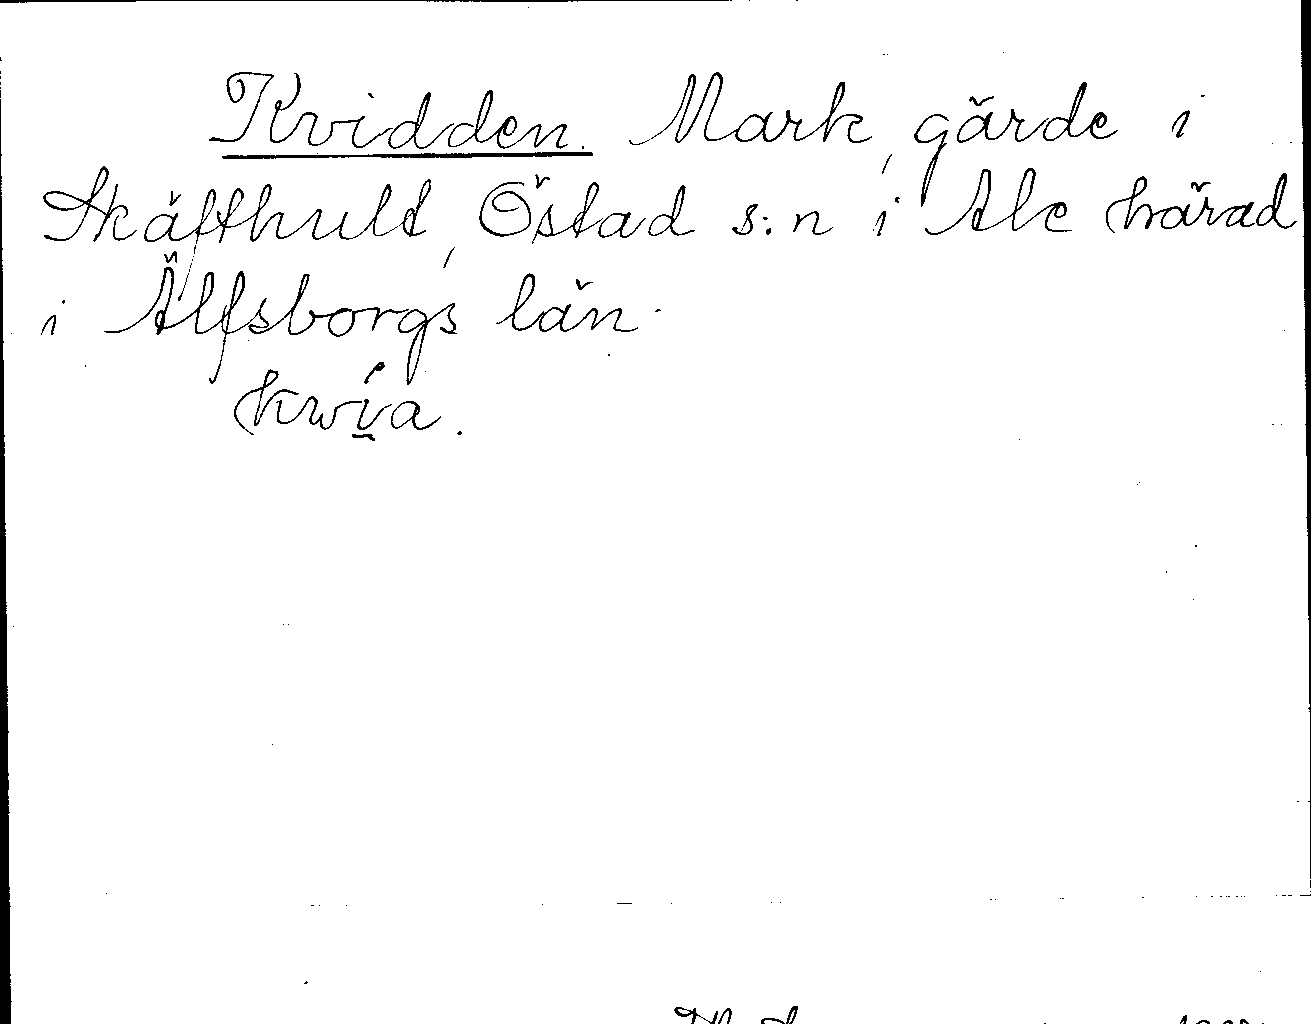 Kvidden. Mark, gärde i
Skäfthult, Östad s:n i Ale härad
i Älfsborgs län.
kwia.